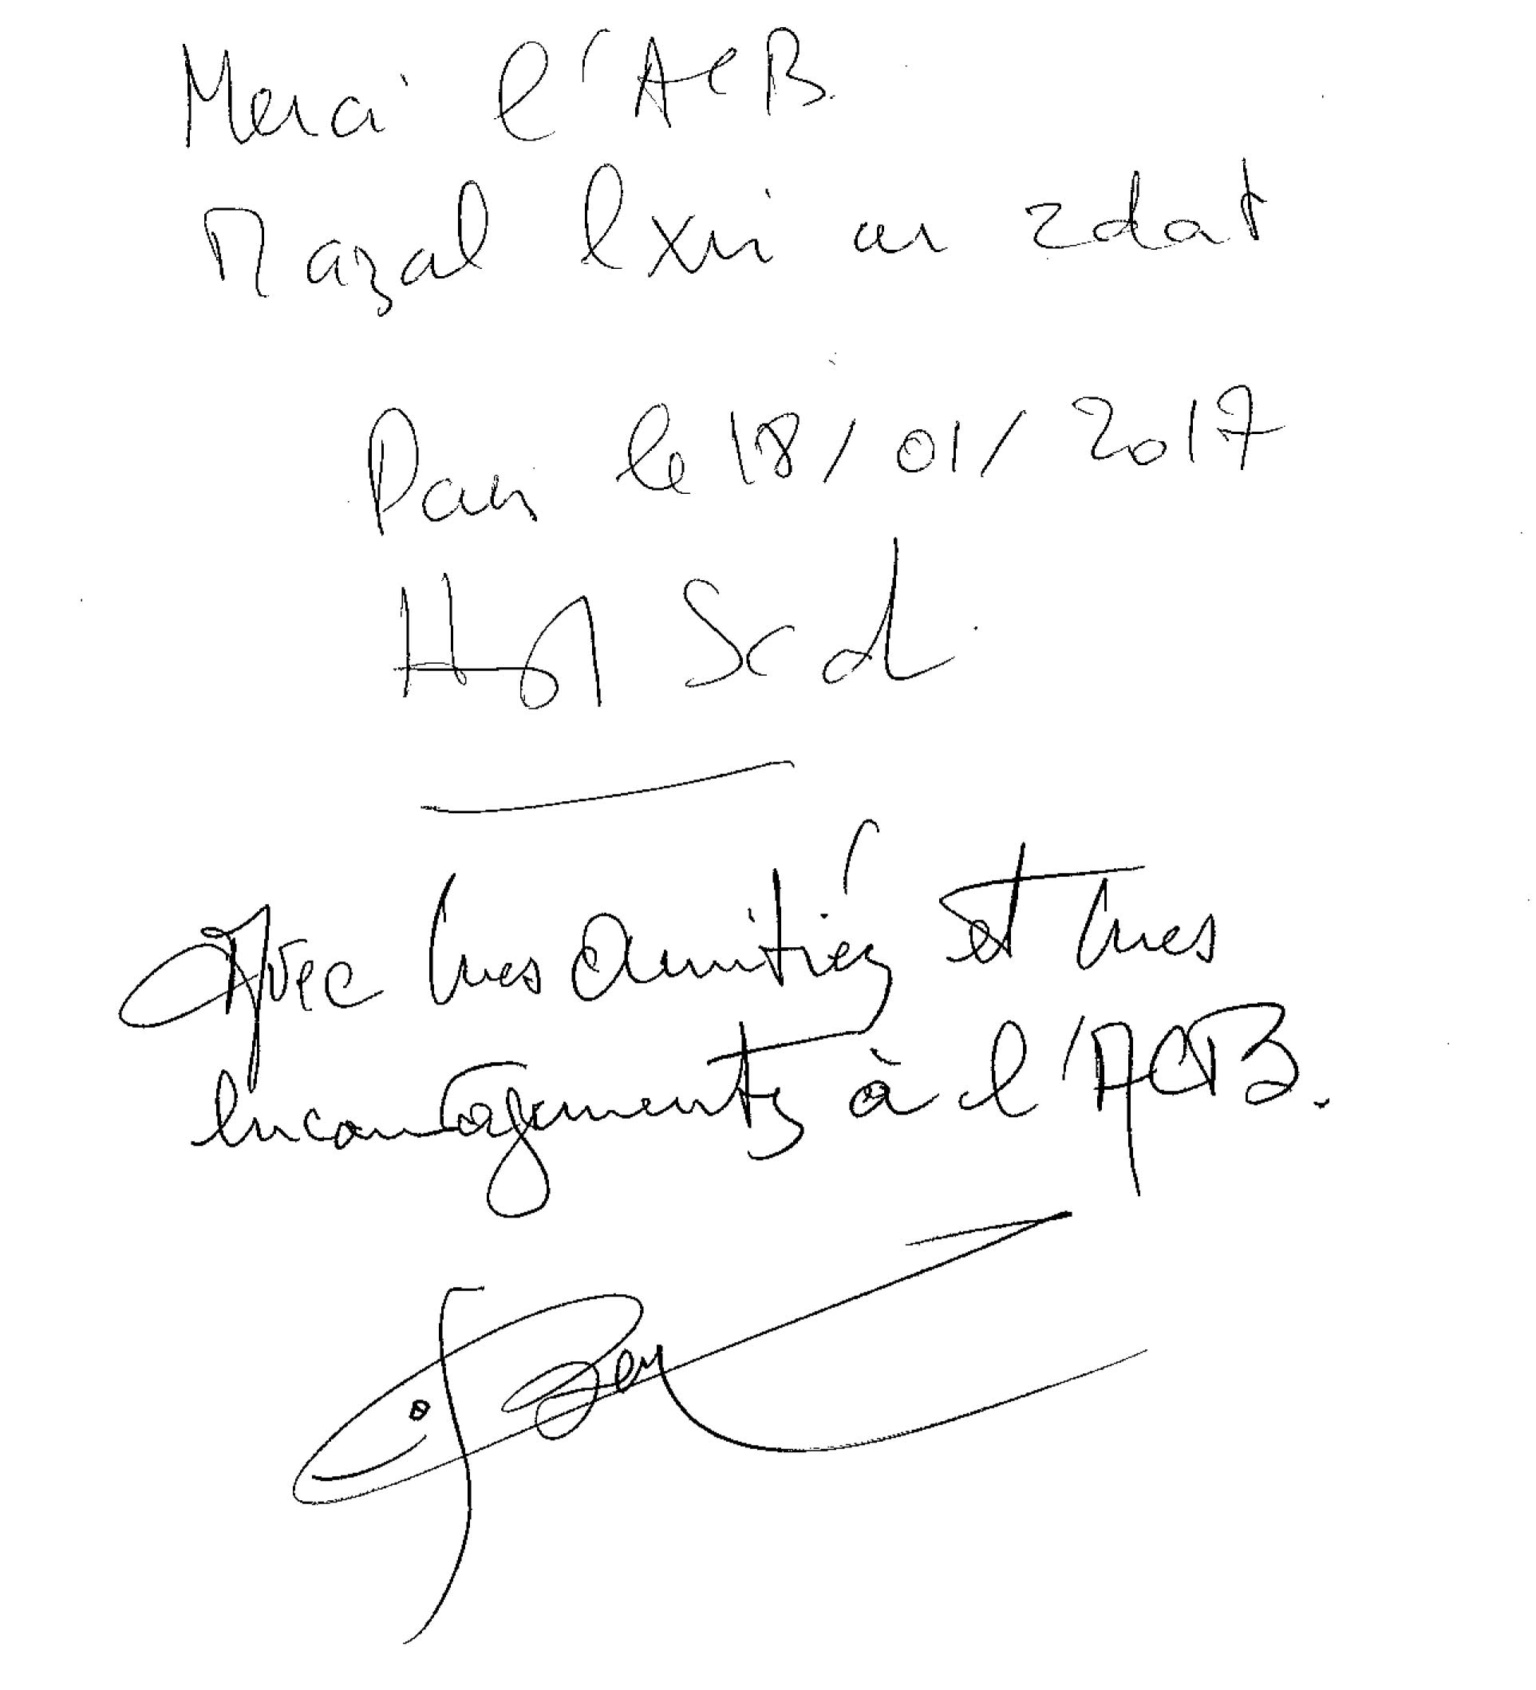 Merci l'ACB.
Mazal lxir ar zdat
Paris le 18/01/2017
Avec mes amitiés et mes
encouragements à l'ACB.